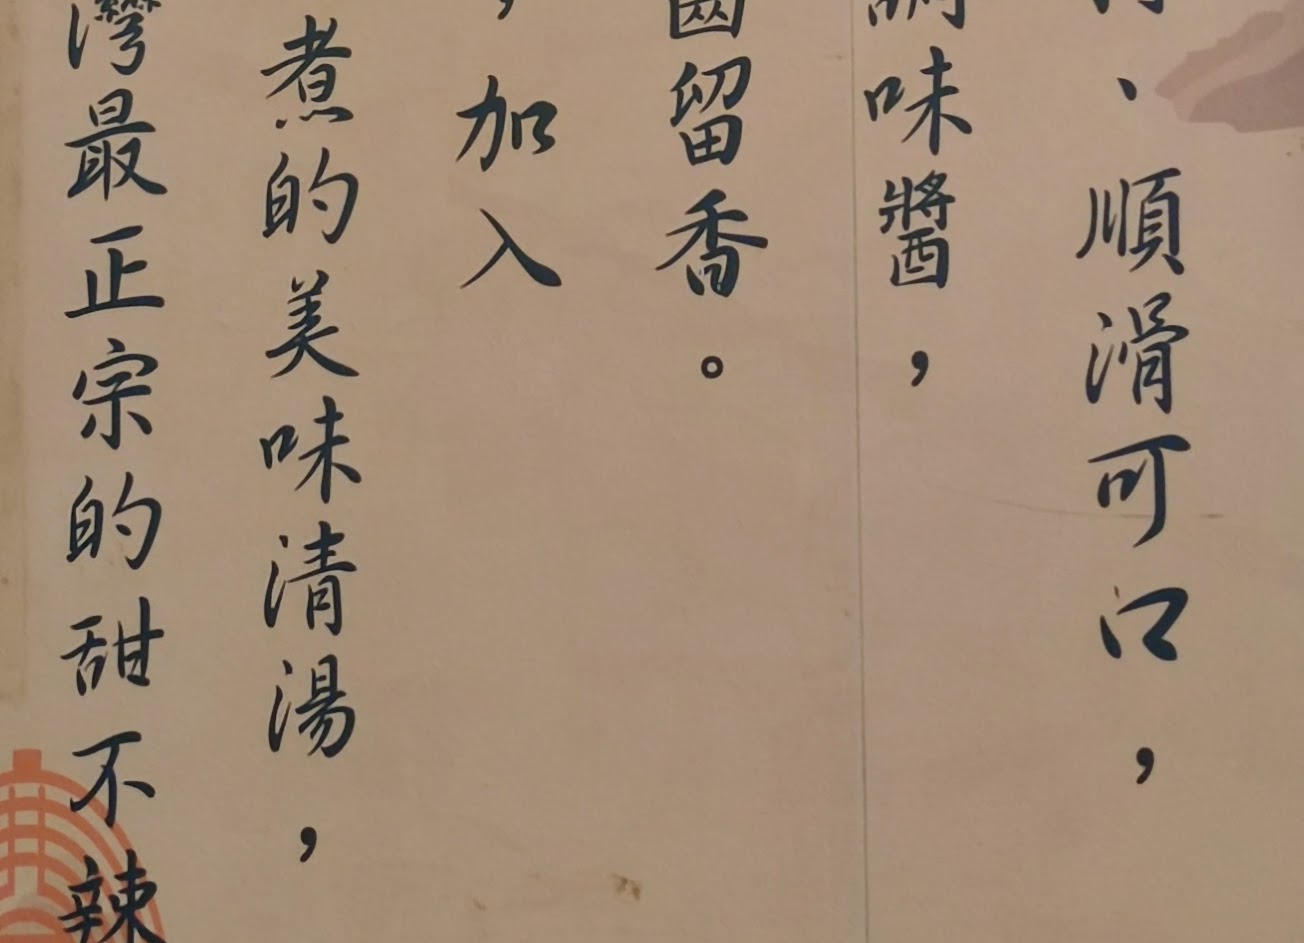 、順滑可口，
調味醬，
齒留香。
，加入
煮的美味清湯，
灣最正宗的甜不辣